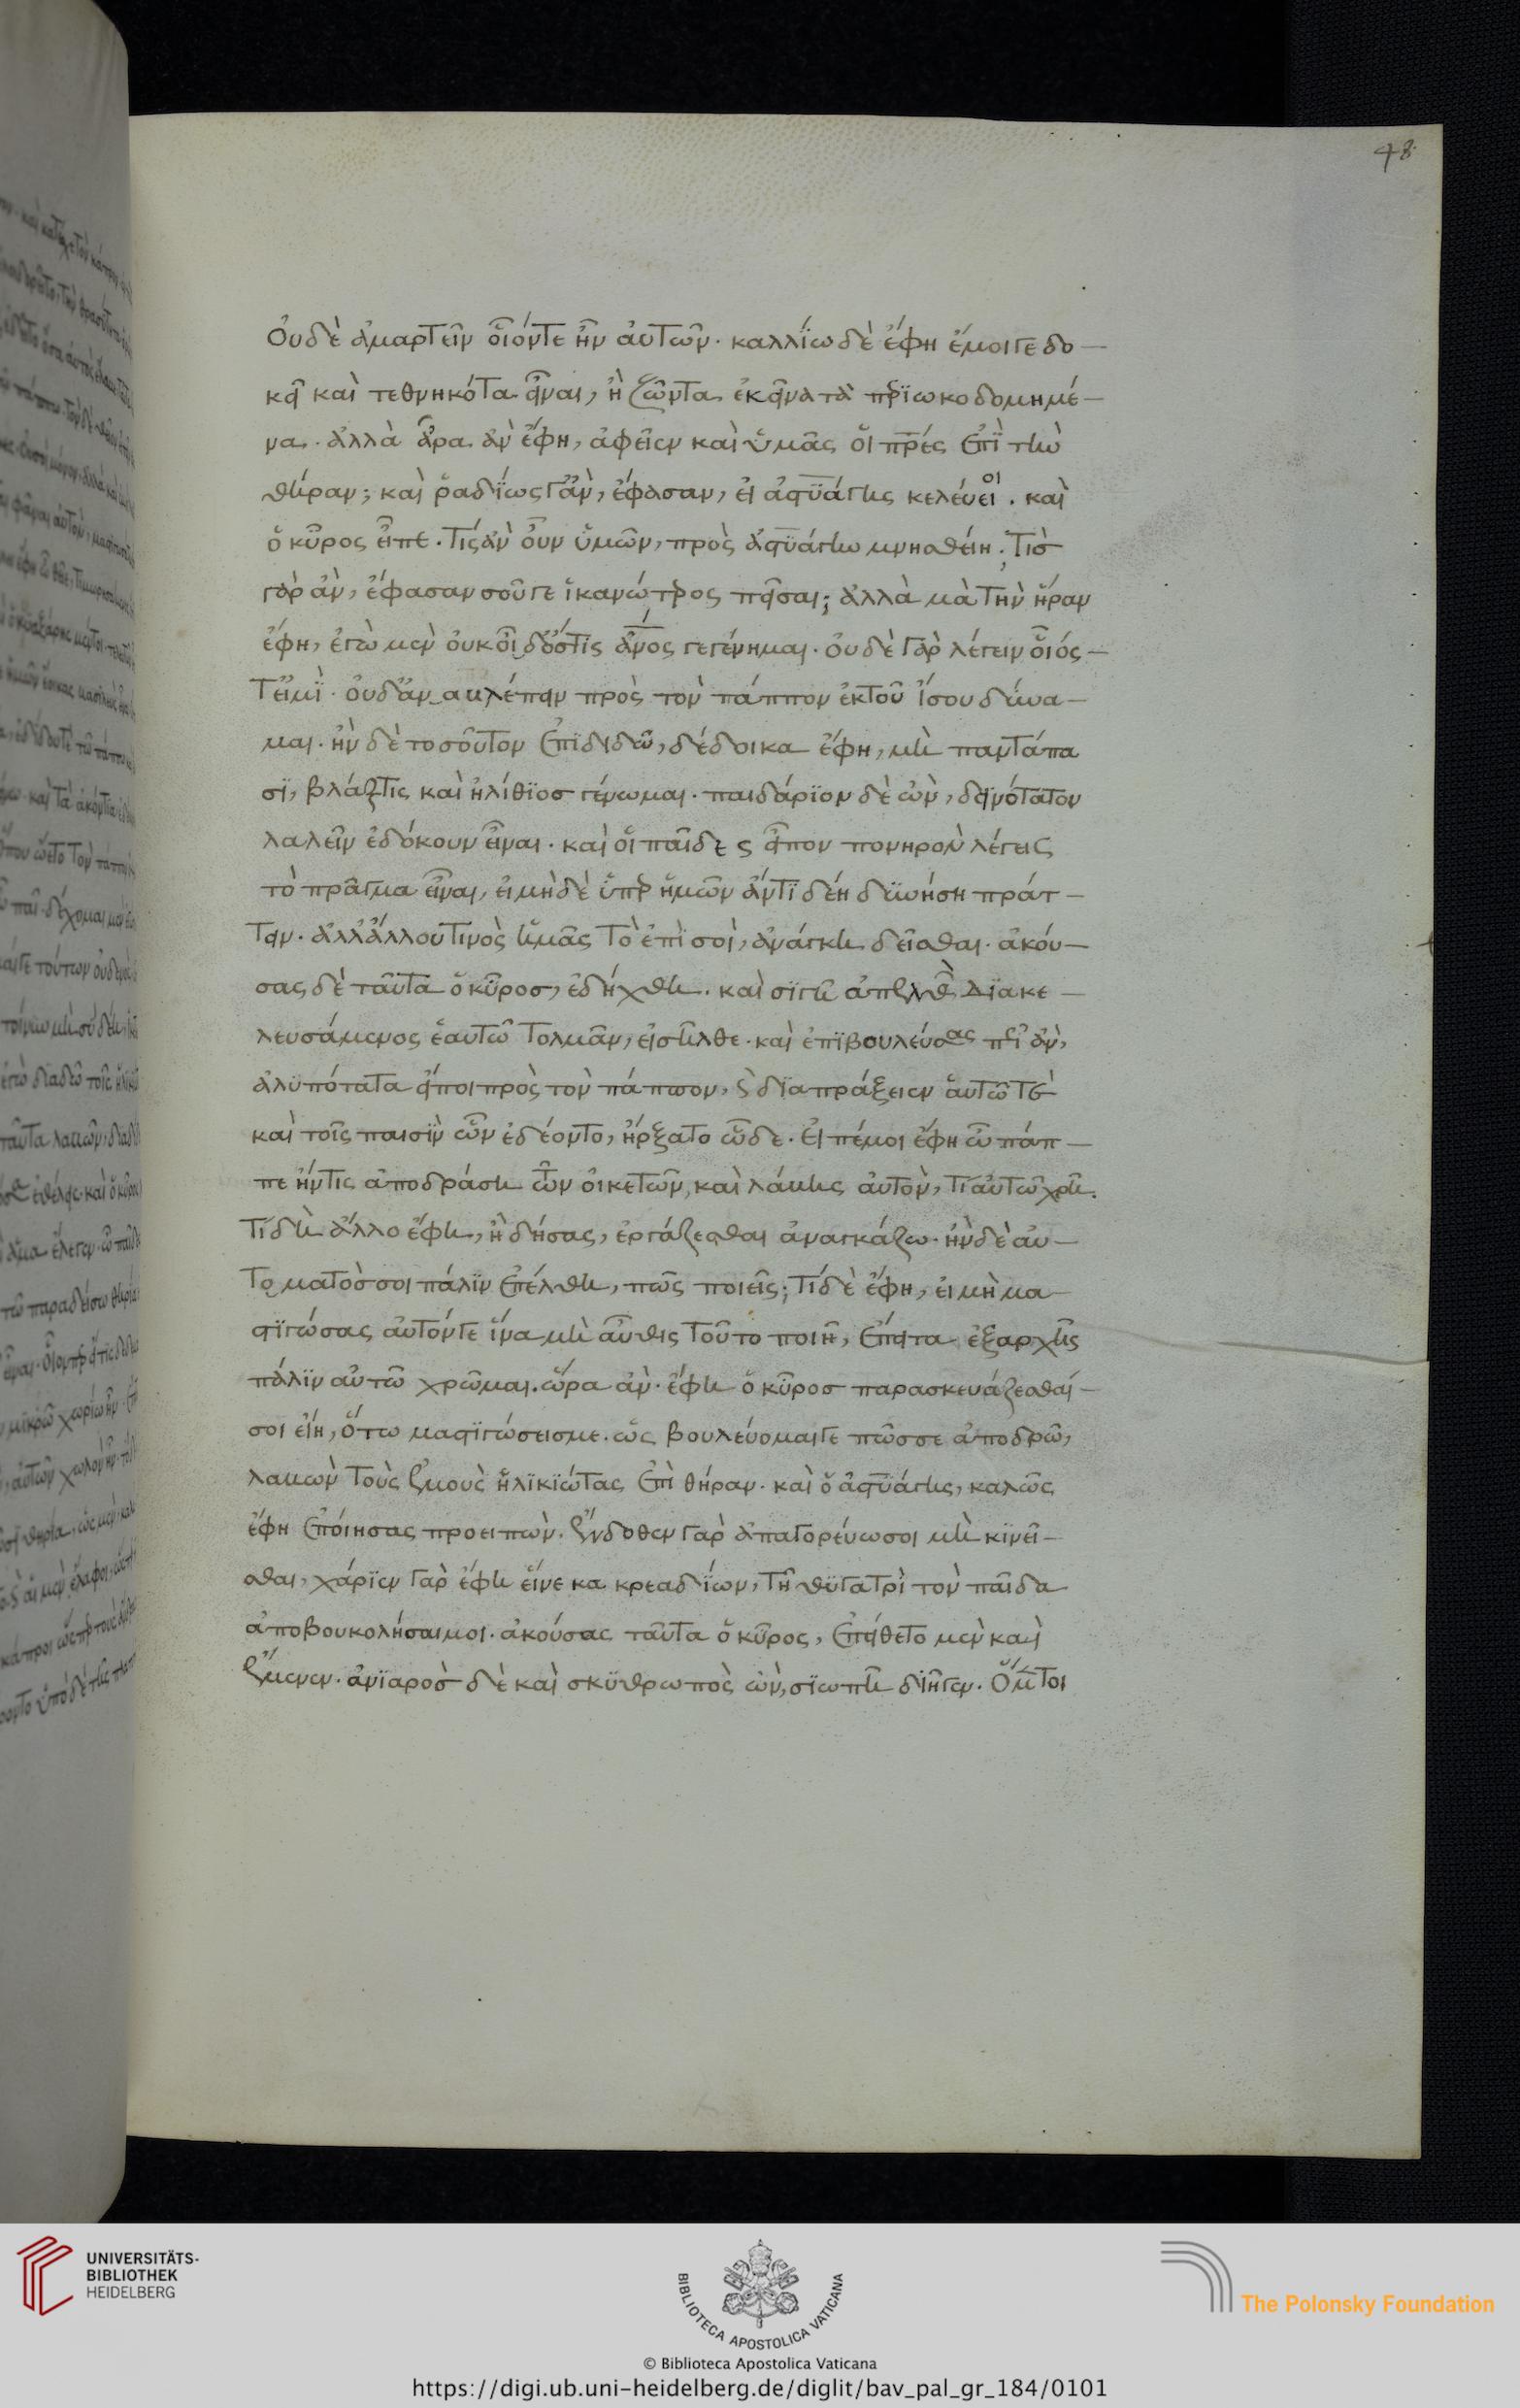 48
Οὐδὲ ἁμαρτεῖν οἷόντε ἦν αὐτῶν· καλλίω δὲ ἔφη ἔμοιγε δο—
κεῖ καὶ τεθνηκότα εἶναι, ἢ ζῶντα ἐκεῖνα τὰ πριωκοδομημέ—
να. ἀλλὰ ἆρα ἂν ἔφη, ἀφεῖεν καὶ ὑμᾶς οἱ πρές ἐπὶ τὴν
θήραν; καὶ ῥαδίως γἂν, ἔφασαν, εἰ ἀστϋάγης κελεύει οι. καὶ
ὁ κῦρος εἶπε. τίς ἂν οὖν ὑμῶν, πρὸς ἀστϋάγην μνησθείη. τίσ
γὰρ ἂν, ἔφασαν σοῦγε ἱκανώτερος πεῖσαι; ἀλλὰ μὰ τὴν ἥραν
ἔφη, ἐγὼ μὲν οὐκ οἶδ ὅστις ἄνος γεγένημαι. οὐδὲ γὰρ λέγειν οἷός—
τεἰμὶ. οὐδ ἂν ἀναβλέπειν πρὸς τὸν πάππον ἐκ τοῦ ἴσου δύνα—
μαι. ἢν δὲ τοσοῦτον ἐπιδιδῶ, δέδοικα ἔφη, μὴ παντάπα
σϊ, βλάξ τις καὶ ἠλίθϊοσ γένωμαι. παιδάρϊον δὲ ὢν, δεινότατον
λαλεῖν ἐδόκουν εἶναι. καὶ οἱ παῖδες εἶπον πονηρὸν λέγεις
τὸ πρᾶγμα εἶναι, εἰ μὴδὲ ὑπὲρ ἡμῶν ἄντι δέη δϋνήση πράτ—
τειν. ἀλλ ἄλλου τινὸς ἡμᾶς τὸ ἐπὶ σοὶ, ἀνάγκη δεῖσθαι. ἀκού—
σας δὲ ταῦτα ὁ κῦροσ, ἐδήχθη. καὶ σϊγῆ ἀπελθὼν διακε—
λευσάμενος ἑαυτῶ τολμᾶν, εἰσῆλθε. καὶ ἐπϊβουλεύσας πῶς ἂν,
ἀλϋπότατα εἴποι πρὸς τὸν πάππον, καὶ δϊαπράξειεν αὑτῶ τὲ
καὶ τοῖς παισὶν ὧν ἐδέοντο, ἤρξατο ὧδε. εἰπέμοι ἔφη ὦ πάπ—
πε ἤν τις ἀποδράση τῶν οἰκετῶν, καὶ λάβης αὐτὸν, τί αὐτῶ χρῆ.
τί δὴ ἄλλο ἔφη, ἢ δήσας, ἐργάζεσθαι ἀναγκάζω. ἢν δὲ αὐ—
τοματὸσ σοι πάλϊν ἐπέλθη, πῶς ποιεῖς; τί δὲ ἔφη, εἰ μὴ μα—
στϊγώσας αὐτόν γε ἵνα μὴ αὖθις τοῦτο ποιῆ, ἔπειτα ἐξαρχῆς
πάλϊν αὐτῶ χρῶμαι. ὥρα ἂν. ἔφη ὁ κῦροσ παρασκευάζεσθαί—
σοι εἴη, ὅτω μαστϊγώσεισμε. ὡς βουλεύομαιγε πῶσσε ἀποδρῶ,
λαβὼν τοὺς ἐμοὺς ἡλϊκϊώτας ἐπὶ θήραν. καὶ ὁ ἀστϋάγης, καλῶς
ἔφη ἐποίησας προειπών. ἔνδοθεν γὰρ ἀπαγορεύωσοι μὴ κϊνεῖ—
σθαι, χάρϊεν γὰρ ἔφη εἵνεκα κρεαδίων, τῆ θϋγατρὶ τὸν παῖδα
ἀποβουκολήσαιμοι. ἀκούσας ταῦτα ὁ κῦρος, ἐπείθετο μὲν καὶ
ἔμενεν. ἀνϊαροσ δὲ καὶ σκϋθρωπὸς ὢν, σϊωπῆ διῆγεν. Ὁ μέντοι
UNIVERSITÄTS-
BIBLIOTHEK
HEIDELBERG
BIBLIOTECA APOSTOLICA VATICANA
The Polonsky Foundation
© Biblioteca Apostolica Vaticana
https://digi.ub.uni-heidelberg.de/diglit/bav_pal_gr_184/0101